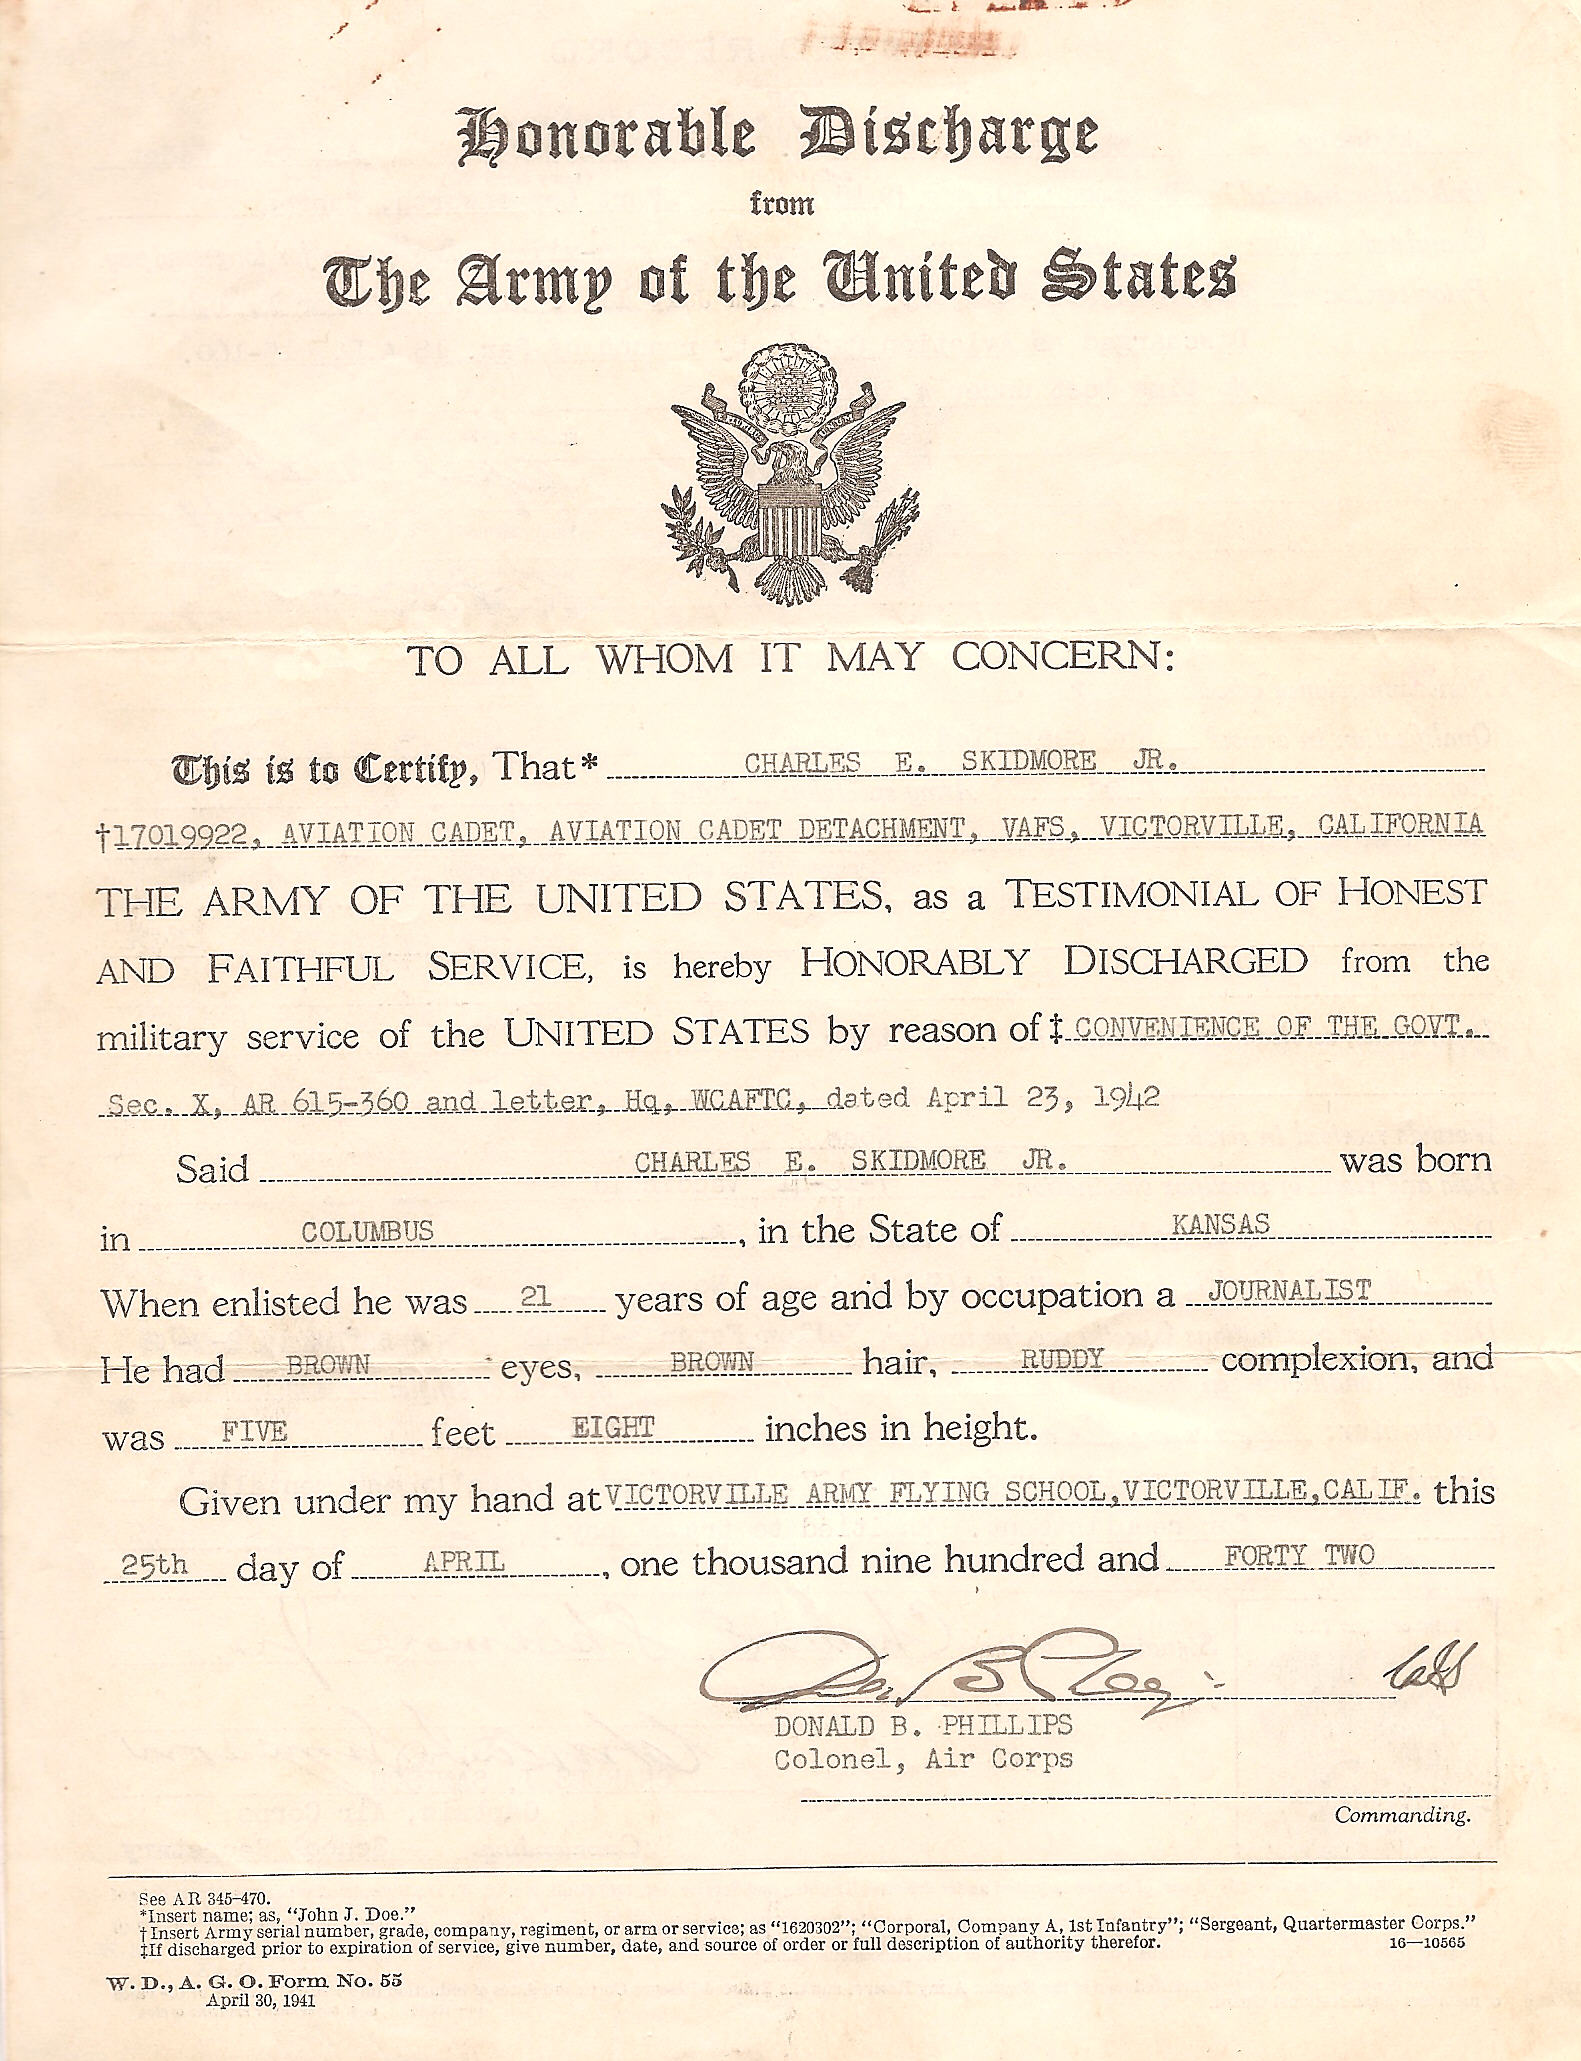 Honorable Discharge
from
The Army of the United States
TO ALL WHOM IT MAY CONCERN:
This is to Certify, That* CHARLES E. SKIDMORE JR.
†17019922, AVIATION CADET, AVIATION CADET DETACHMENT, VAFS, VICTORVILLE, CALIFORNIA
THE ARMY OF THE UNITED STATES, as a TESTIMONIAL OF HONEST
AND FAITHFUL SERVICE, is hereby HONORABLY DISCHARGED from the
military service of the UNITED STATES by reason of ‡ CONVENIENCE OF THE GOVT.
Sec. X, AR 615-360 and letter, Hq, WCAFTC, dated April 23, 1942
Said CHARLES E. SKIDMORE JR. was born
in COLUMBUS, in the State of KANSAS
When enlisted he was 21 years of age and by occupation a JOURNALIST
He had BROWN eyes, BROWN hair, RUDDY complexion, and
was FIVE feet EIGHT inches in height.
Given under my hand at VICTORVILLE ARMY FLYING SCHOOL,VICTORVILLE,CALIF. this
25th day of APRIL, one thousand nine hundred and FORTY TWO
DONALD B. PHILLIPS
Colonel, Air Corps
Commanding.
See AR 345-470.
*Insert name; as, "John J. Doe."
†Insert Army serial number, grade, company, regiment, or arm or service; as "1620302"; "Corporal, Company A, 1st Infantry"; "Sergeant, Quartermaster Corps."
‡If discharged prior to expiration of service, give number, date, and source of order or full description of authority therefor. 16—10565
W. D., A. G. O. Form No. 55
April 30, 1941